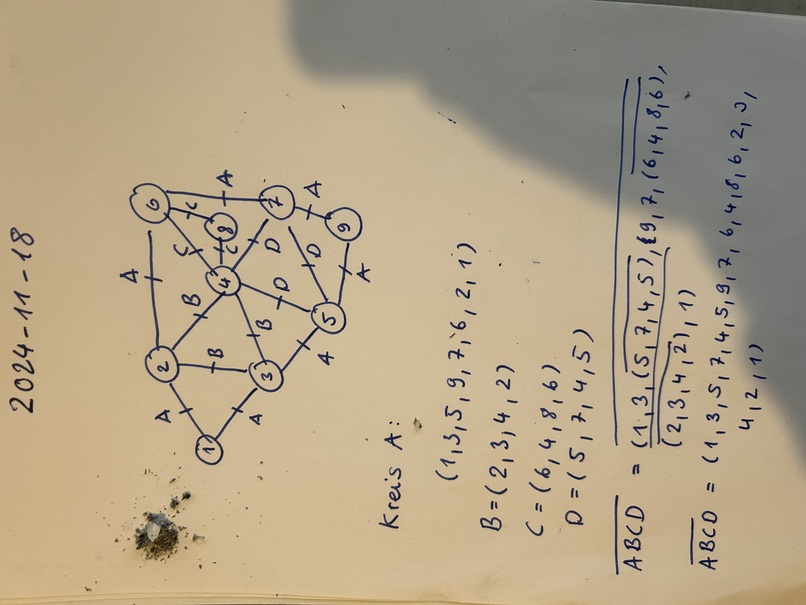 2024-11-18
6
A
C
A
7
A
8
C
C
9
A
4
D
D
D
B
5
2
B
B
A
3
A
A
1
Kreis A:
(1,3,5,9,7,6,2,1)
B=(2,3,4,2)
C=(6,4,8,6)
D=(5,7,4,5)
ABCD = (1,3,(5,7,4,5),9,7,(6,4,8,6),
(2,3,4,2),1)
ABCD = (1,3,5,7,4,5,9,7,6,4,8,6,2,3,
4,2,1)